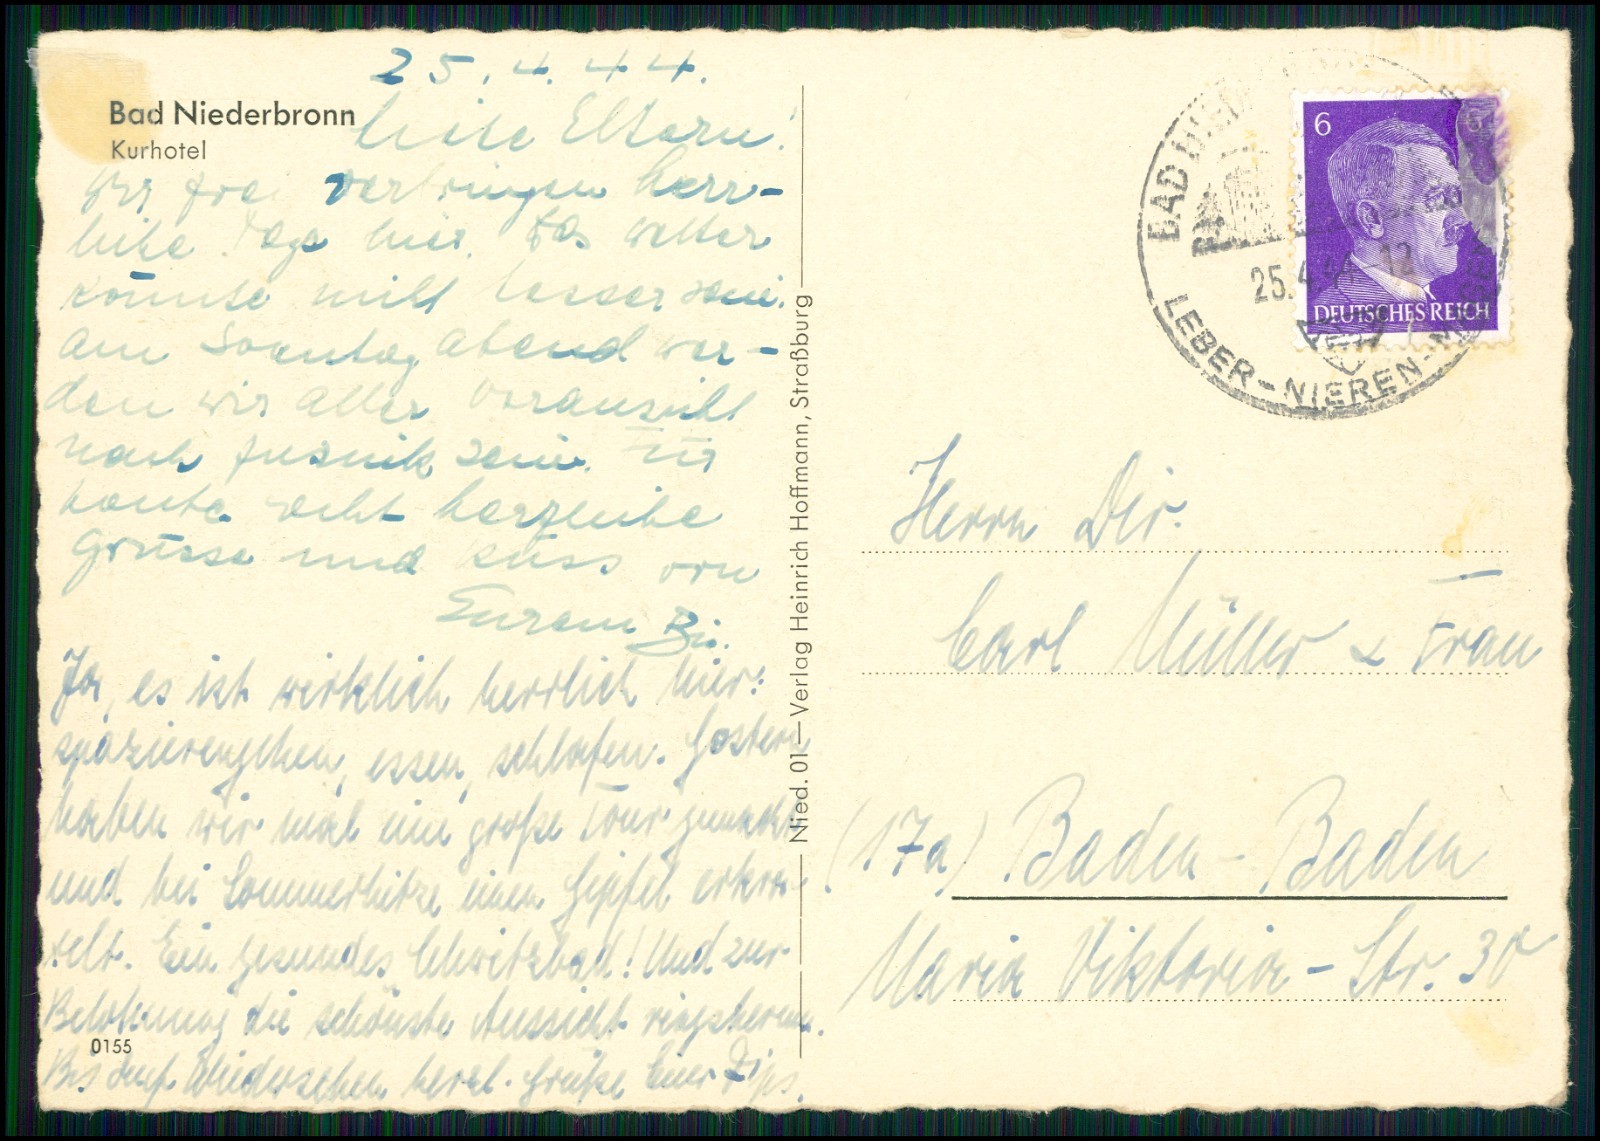 25.4.44.
Bad Niederbronn
Kurhotel
Liebe Eltern!
Wir zwei verbringen herr-
liche Tage hier. Das Wetter
könnte nicht besser sein.
Am Sonntag abend wer-
den wir aller Voraussicht
nach zurück sein. Für
heute recht herzliche
Grüsse und Kuss von
Eurem
Ja, es ist wirklich herrlich hier:
spazierengehen, essen, schlafen. Gestern
haben wir mal eine große Tour gemacht
und bei Sommerhitze einen Gipfel erkra-
xelt. Ein gesundes Schwitzbad! Und zur
Belohnung die schönste Aussicht ringsherum.
0155
Bis auf Wiedersehen herzl. Grüße Euer
Nied. 01 — Verlag Heinrich Hoffmann, Straßburg
6
DEUTSCHES REICH
BAD
25.4.4 -12
LEBER-NIEREN-
Herrn Dir.
Carl Müller & Frau
(17a) Baden-Baden
Maria Viktoria-Str. 30